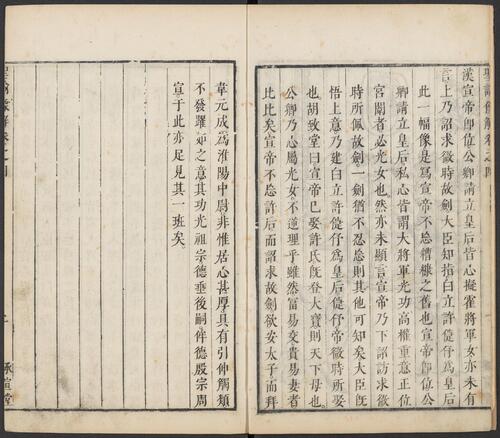 聖諭像解卷之四
漢宣帝卽位公卿請立皇后皆心擬霍將軍女亦未有
言上乃詔求微時故劍大臣知指白立許倢伃爲皇后
此一幅像是爲宣帝不忘糟糠之舊也宣帝卽位公
卿請立皇后私心皆謂大將軍光功高權重意正位
宮闈者必光女也然亦未顯言宣帝乃下詔訪求微
時所佩故劍一劍猶不忍忘則其他可知矣大臣旣
悟上意乃建白立許倢伃爲皇后倢伃帝微時所娶
也胡致堂曰宣帝已娶許氏旣登大寶則天下母也
公卿乃心屬光女不遜理乎雖然富易交貴易妻者
比比矣宣帝不忘許后而詔求故劍欲安太子而拜
韋元成爲淮陽中尉非惟居心甚厚具有引伸觸類
不發躍如之意其功光祖宗德垂後嗣侔德殷宗周
宣于此亦足見其一班矣
聖諭像解卷之四
承宣堂